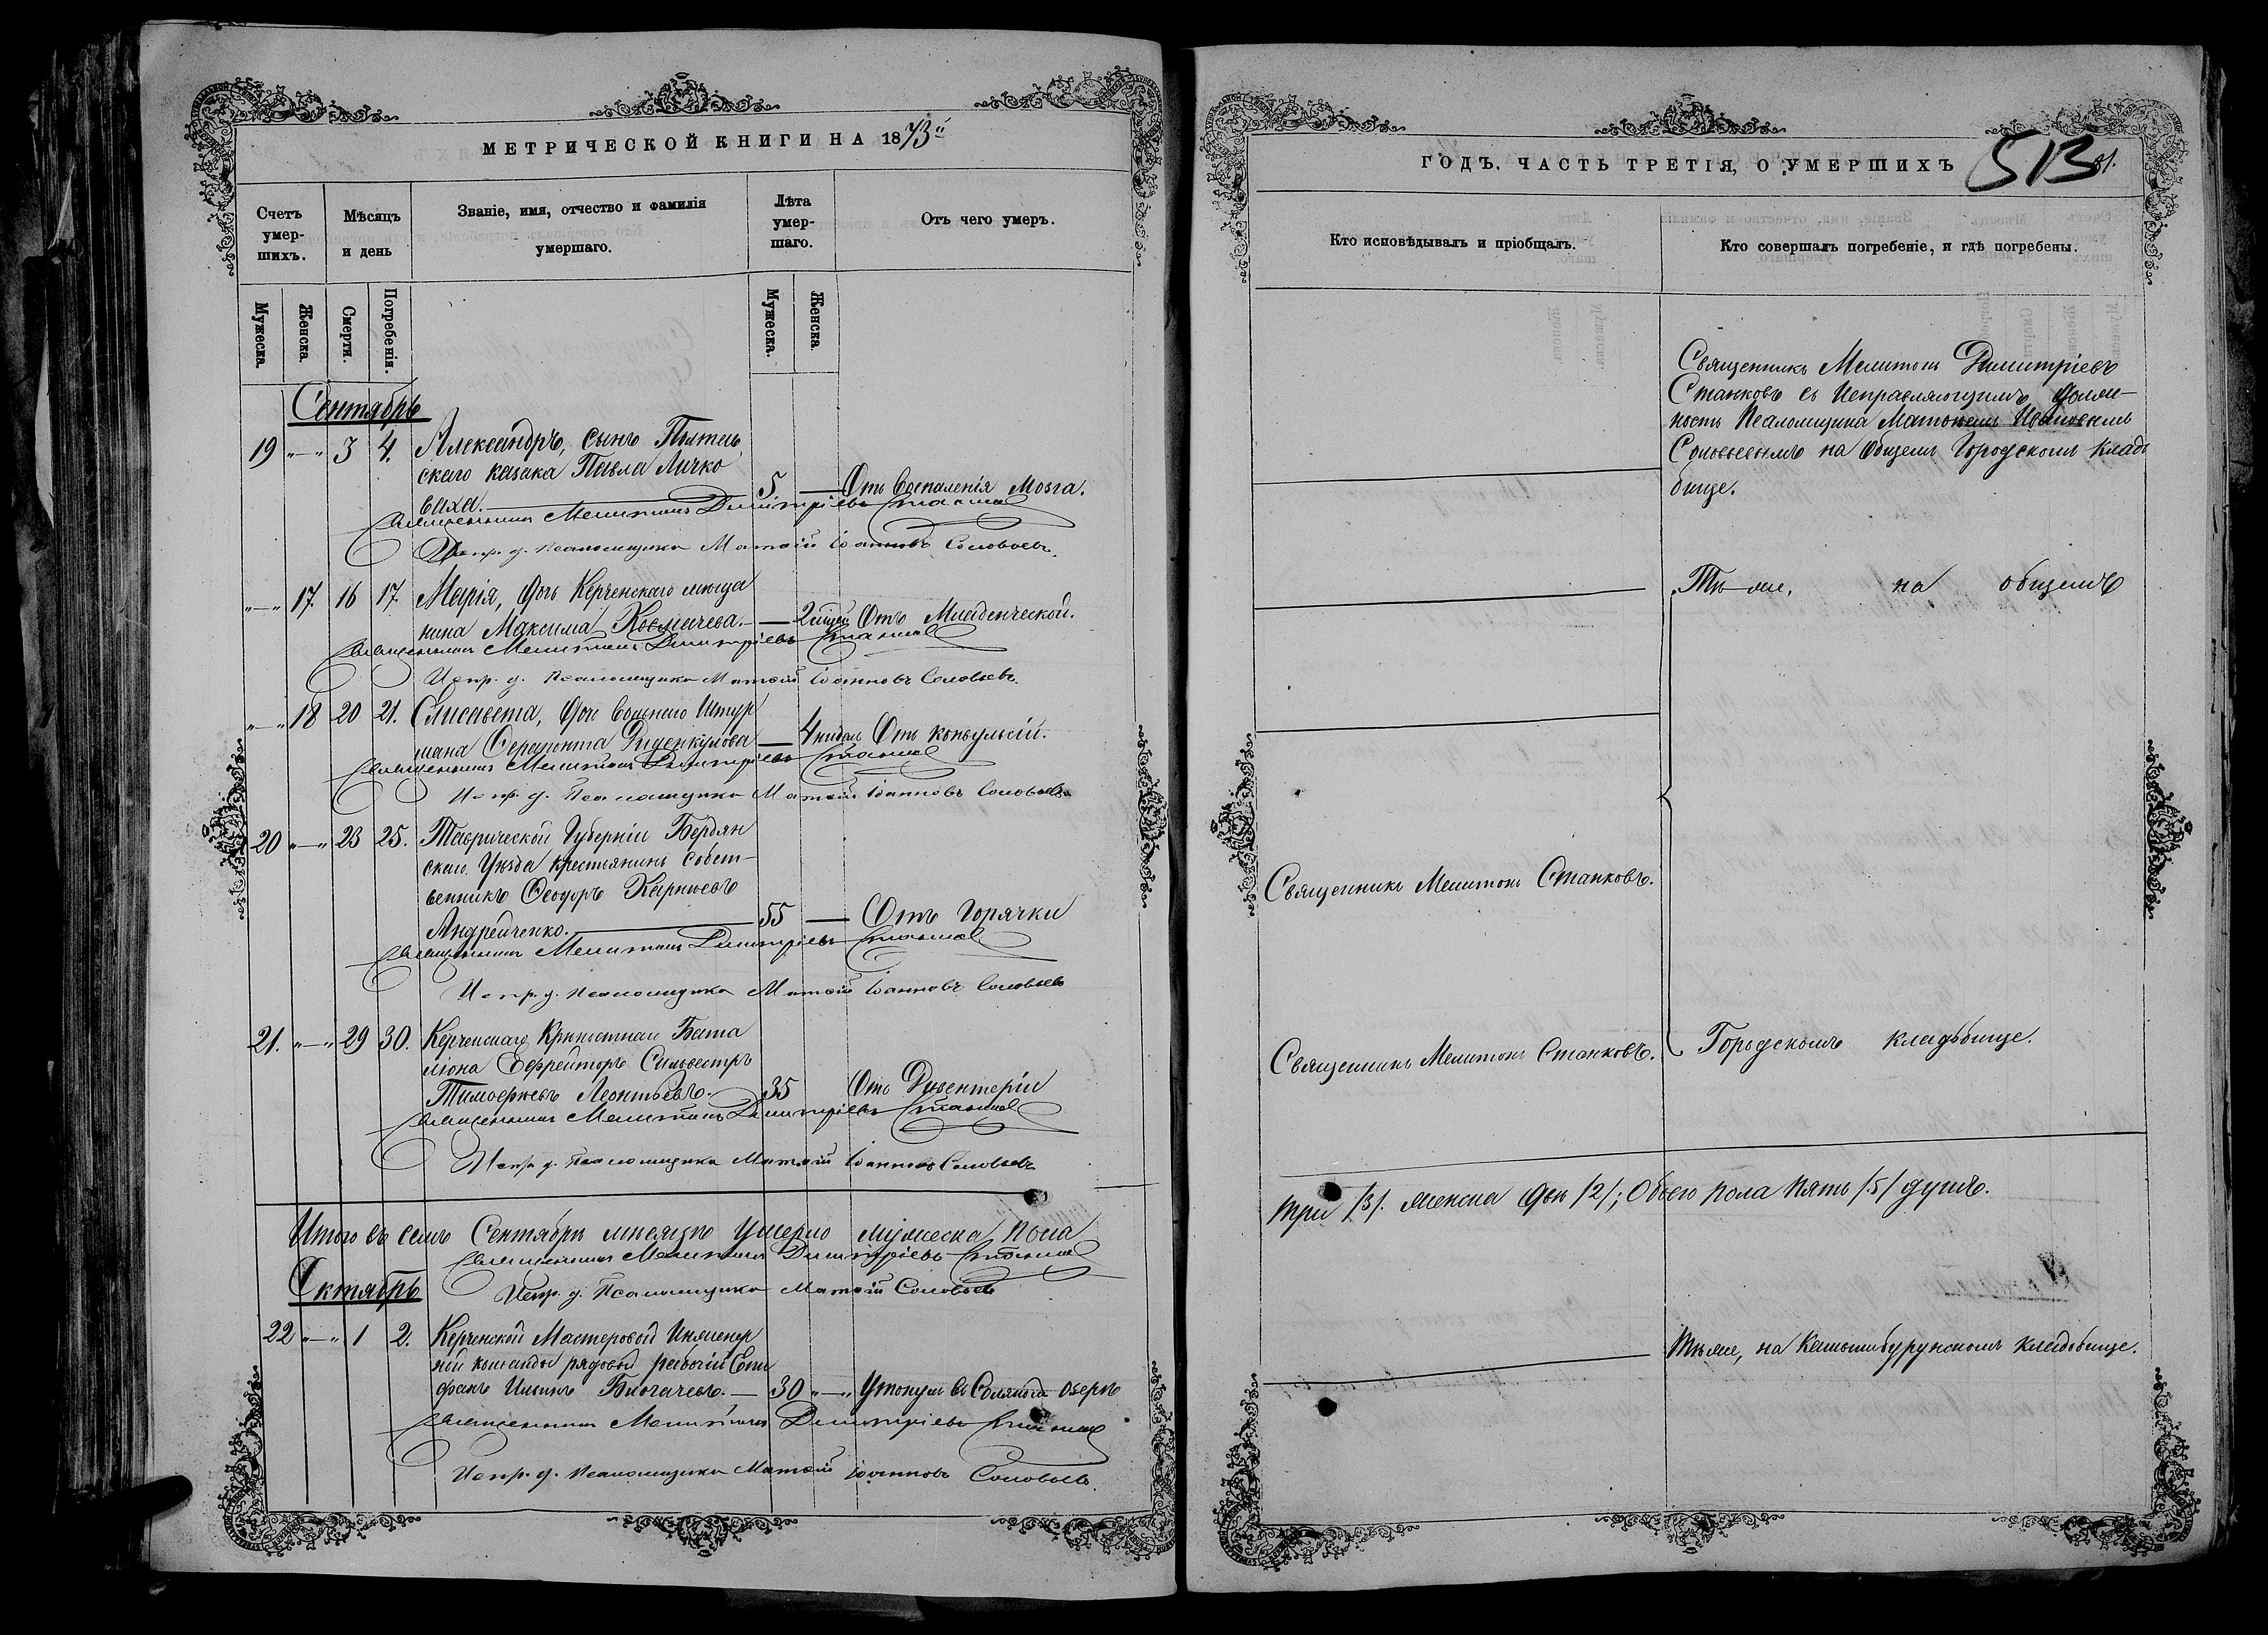 МЕТРИЧЕСКОЙ КНИГИ НА 1873й
Счетъ умер-шихъ.
Мѣсяцъ и день
Званіе, имя, отчество и фамилія умершаго.
Лѣта умер-шаго.
Отъ чего умеръ.
Мужеска.
Женска.
Смерти.
Погребенія.
Мужеска.
Женска.
Сентябрь
19 „—„ 3 4. Александръ, сынъ
скаго казака Павла Личко
ваха. 5 — Отъ Воспаленія Мозга.
Священникъ Мелитонъ Димитріевъ Станковъ
Испр. д. Псаломщика Матѳій Іоанновъ Соловьевъ.
„—„ 17. 16 17. Марія, дочь Керченскаго мѣща
нина Максима — Отъ Младенческой.
Священникъ Мелитонъ Димитріевъ Станковъ
Испр. д. Псаломщика Матѳій Іоанновъ Соловьевъ.
„—„ 18 20 21. Елисавета, дочь Вольнаго Штур
мана Ѳерапонта — 4 Отъ конвульсій.
Священникъ Мелитонъ Димитріевъ Станковъ
Испр. д. Псаломщика Матѳій Іоанновъ Соловьевъ.
20 „—„ 23 25. Таврической Губерніи Бердян
скаго Уѣзда крестьянинъ собст-
венникъ Ѳеодоръ Карпіевъ
Андрейченко. 55 — Отъ Горячки
Священникъ Мелитонъ Димитріевъ Станковъ
Испр. д. Псаломщика Матѳій Іоанновъ Соловьевъ
21. „—„ 29 30. Керченскаго Крѣпостнаго Бата
ліона Ефрейторъ Сильвестръ
Тимоѳеевъ Леонтьевъ. 35 Отъ Дизентеріи
Священникъ Мелитонъ Димитріевъ Станковъ
Испр. д. Псаломщика Матѳій Іоанновъ Соловьевъ
Итого въ семъ Сентябрѣ мѣсяцѣ умерло мужеска пола
Священникъ Мелитонъ Димитріевъ Станковъ
Октябрь
Испр. д. Псаломщика Матѳій Соловьевъ
22 „—„ 1 2. Керченской Мастеровой Инженер
ной команды рядовой рабочій Епи
фанъ Ильинъ — 30 „—„ Утонулъ въ Соляномъ озерѣ
Священникъ Мелитонъ Димитріевъ Станковъ
Испр. д. Псаломщика Матѳій Іоанновъ Соловьевъ.
ГОДЪ. ЧАСТЬ ТРЕТІЯ, О УМЕРШИХЪ
513
Кто исповѣдывалъ и пріобщалъ.
Кто совершалъ погребеніе, и гдѣ погребены.
Священникъ Мелитонъ Димитріевъ
Станковъ съ Исправляющимъ долж-
ность Псаломщика Матѳѣемъ Ивановымъ
Соловьевымъ на Общемъ Городскомъ Клад
бище.
Тѣ-же, на общемъ
Священникъ Мелитонъ Станковъ.
Священникъ Мелитонъ Станковъ.
Городскомъ кладбище.
три /3/. женска двѣ /2/; Обоего пола пять /5/ душъ.
Тѣ же, на Камышибурунскомъ кладбище.